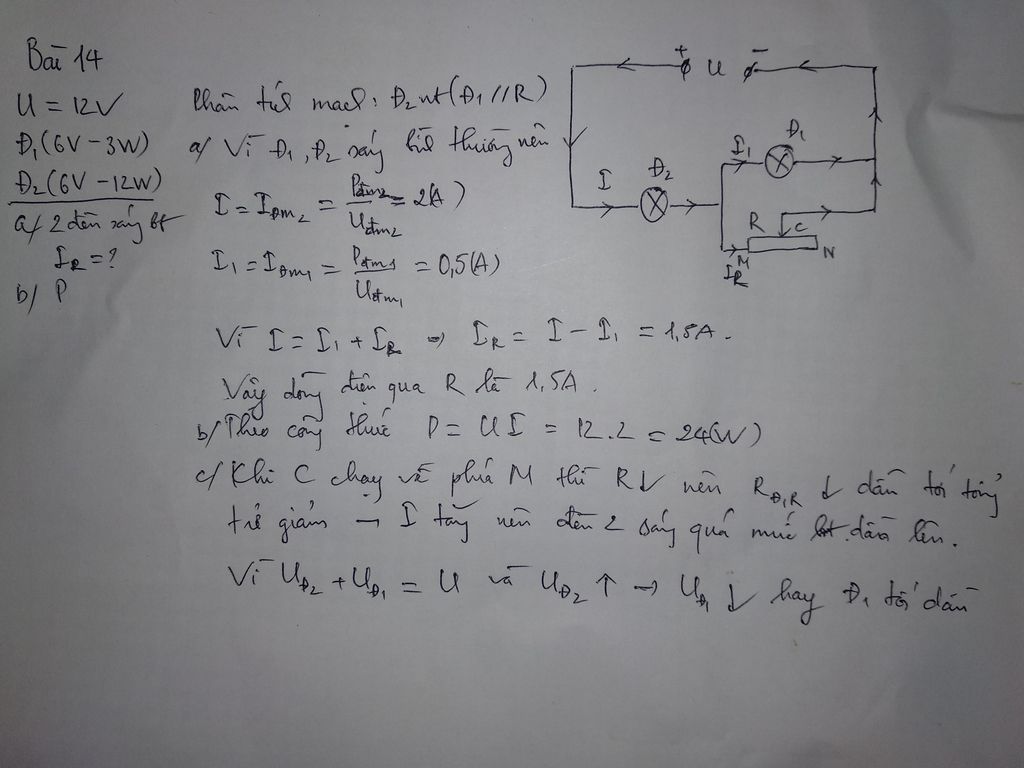 Bài 14
U = 12V
Đ1(6V - 3W)
Đ2(6V - 12W)
a/ 2 đèn sáng bt
IR = ?
b/ P
Phân tích mạch: Đ2 nt (Đ1 // R)
a/ Vì Đ1, Đ2 sáng bình thường nên
I = IĐm2 = Pđm2/Uđm2 = 2(A)
I1 = IĐm1 = Pđm1/Uđm1 = 0,5(A)
Vì I = I1 + IR → IR = I - I1 = 1,5A.
Vậy dòng điện qua R là 1,5A.
b/ Theo công thức P = UI = 12.2 = 24(W)
c/ Khi C chạy về phía M thì R↓ nên RĐ1R ↓ dẫn tới tổng
trở giảm → I tăng nên đèn 2 sáng quá mức bt. dần lên.
Vì UĐ2 + UĐ1 = U và UĐ2 ↑ → UĐ1 ↓ hay Đ1 tối dần
+ U -
I Đ2
I1 Đ1
R C
M N
IR